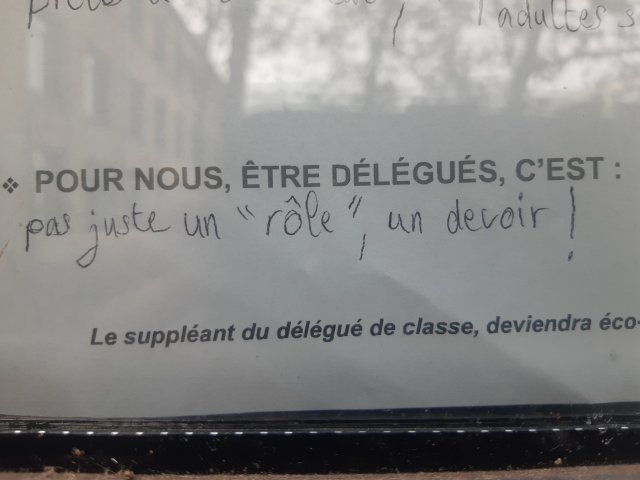 l'adultes s
❖ POUR NOUS, ÊTRE DÉLÉGUÉS, C'EST :
pas juste un "rôle", un devoir !
Le suppléant du délégué de classe, deviendra éco-